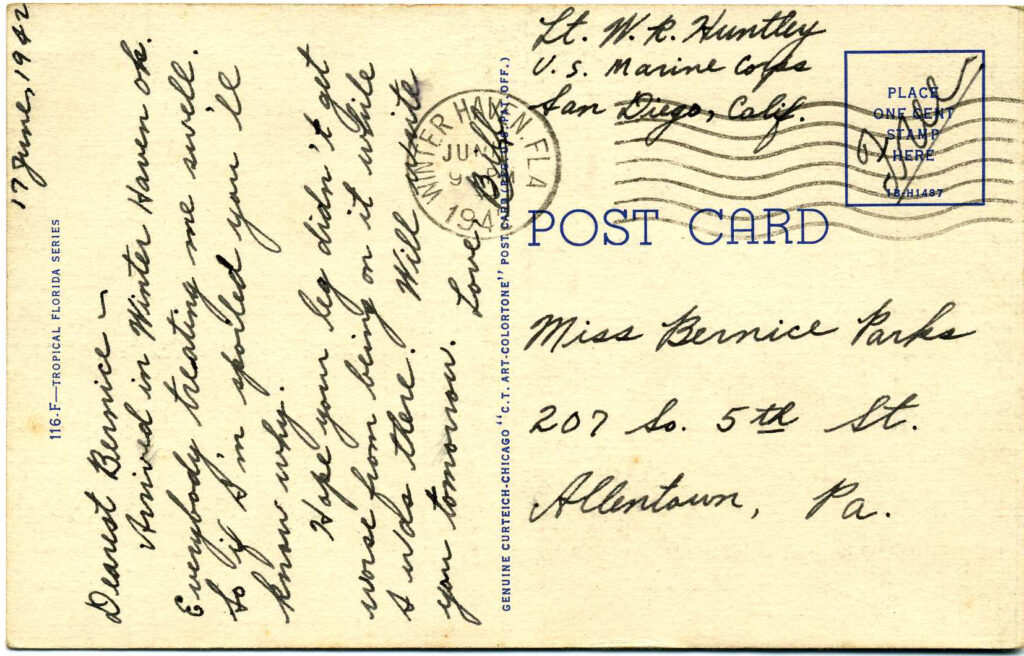 17 June, 1942
Dearest Bernice —
Arrived in Winter Haven ok.
Everybody treating me swell.
So if I'm spoiled you'll
know why.
Hope your leg didn't get
worse from being on it while
I was there. Will write
you tomorrow.
Love
Bill
116-F—TROPICAL FLORIDA SERIES
GENUINE CURTEICH-CHICAGO "C.T. ART-COLORTONE" POST CARD (REG. U.S. PAT. OFF.)
WINTER HAVEN. FLA
JUN
9
194
Lt. W. R. Huntley
U. S. Marine Corps
San Diego, Calif.
Free
PLACE
ONE CENT
STAMP
HERE
1B-H1487
POST CARD
Miss Bernice Parks
207 So. 5th St.
Allentown, Pa.